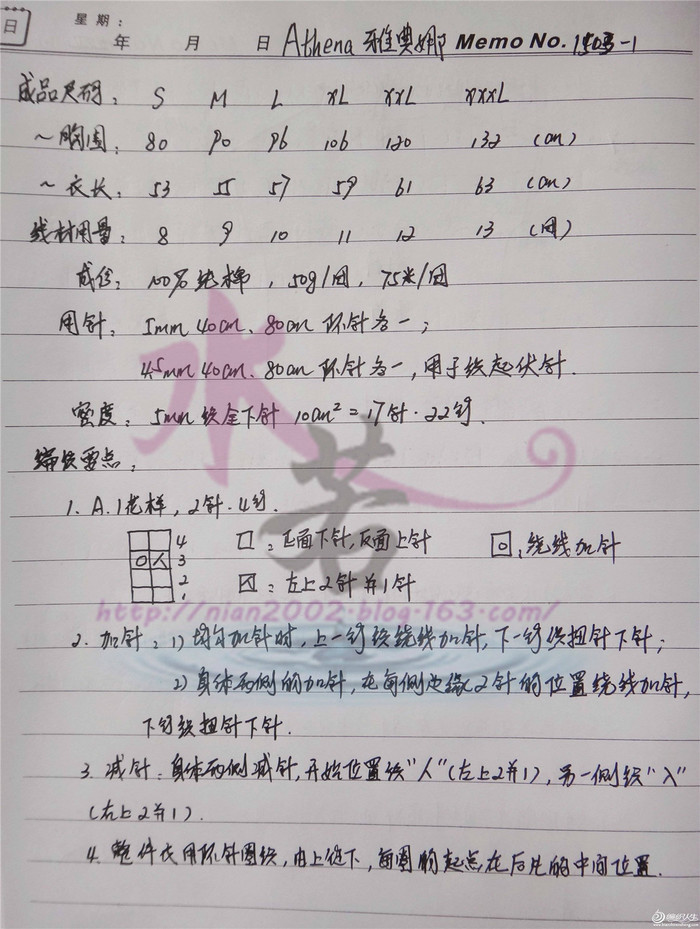 日 星期：
年 月 日 Athena 雅典娜 Memo No. 1503-1
成品尺码： S M L XL XXL XXXL
～胸围： 80 90 96 106 120 132 (cm)
～衣长： 53 55 57 59 61 63 (cm)
线材用量： 8 9 10 11 12 13 (团)
成份： 100%纯棉，50g/团，75米/团
用针： 5mm 40cm、80cm 环针各一；
4.5mm 40cm、80cm 环针各一，用于织起伏针.
密度： 5mm 织全下针 10cm²=17针·22行.
编织要点：
1. A.1花样，2针·4行.
4 □：正面下针，反面上针 回：绕线加针
O人 3
2 ：左上2针并1针
1
http://nian2002.blog.163.com/
2. 加针：1) 均匀加针时，上一行织绕线加针，下一行织扭针下针；
2) 身体两侧的加针，在每侧边缘2针的位置绕线加针，
下行织扭针下针.
3. 减针：身体两侧减针，开始位置织“人”(左上2并1)，另一侧织“入”
(右上2并1).
4. 整件衣用环针圈织，由上往下，每圈的起点在后片的中间位置.
水若